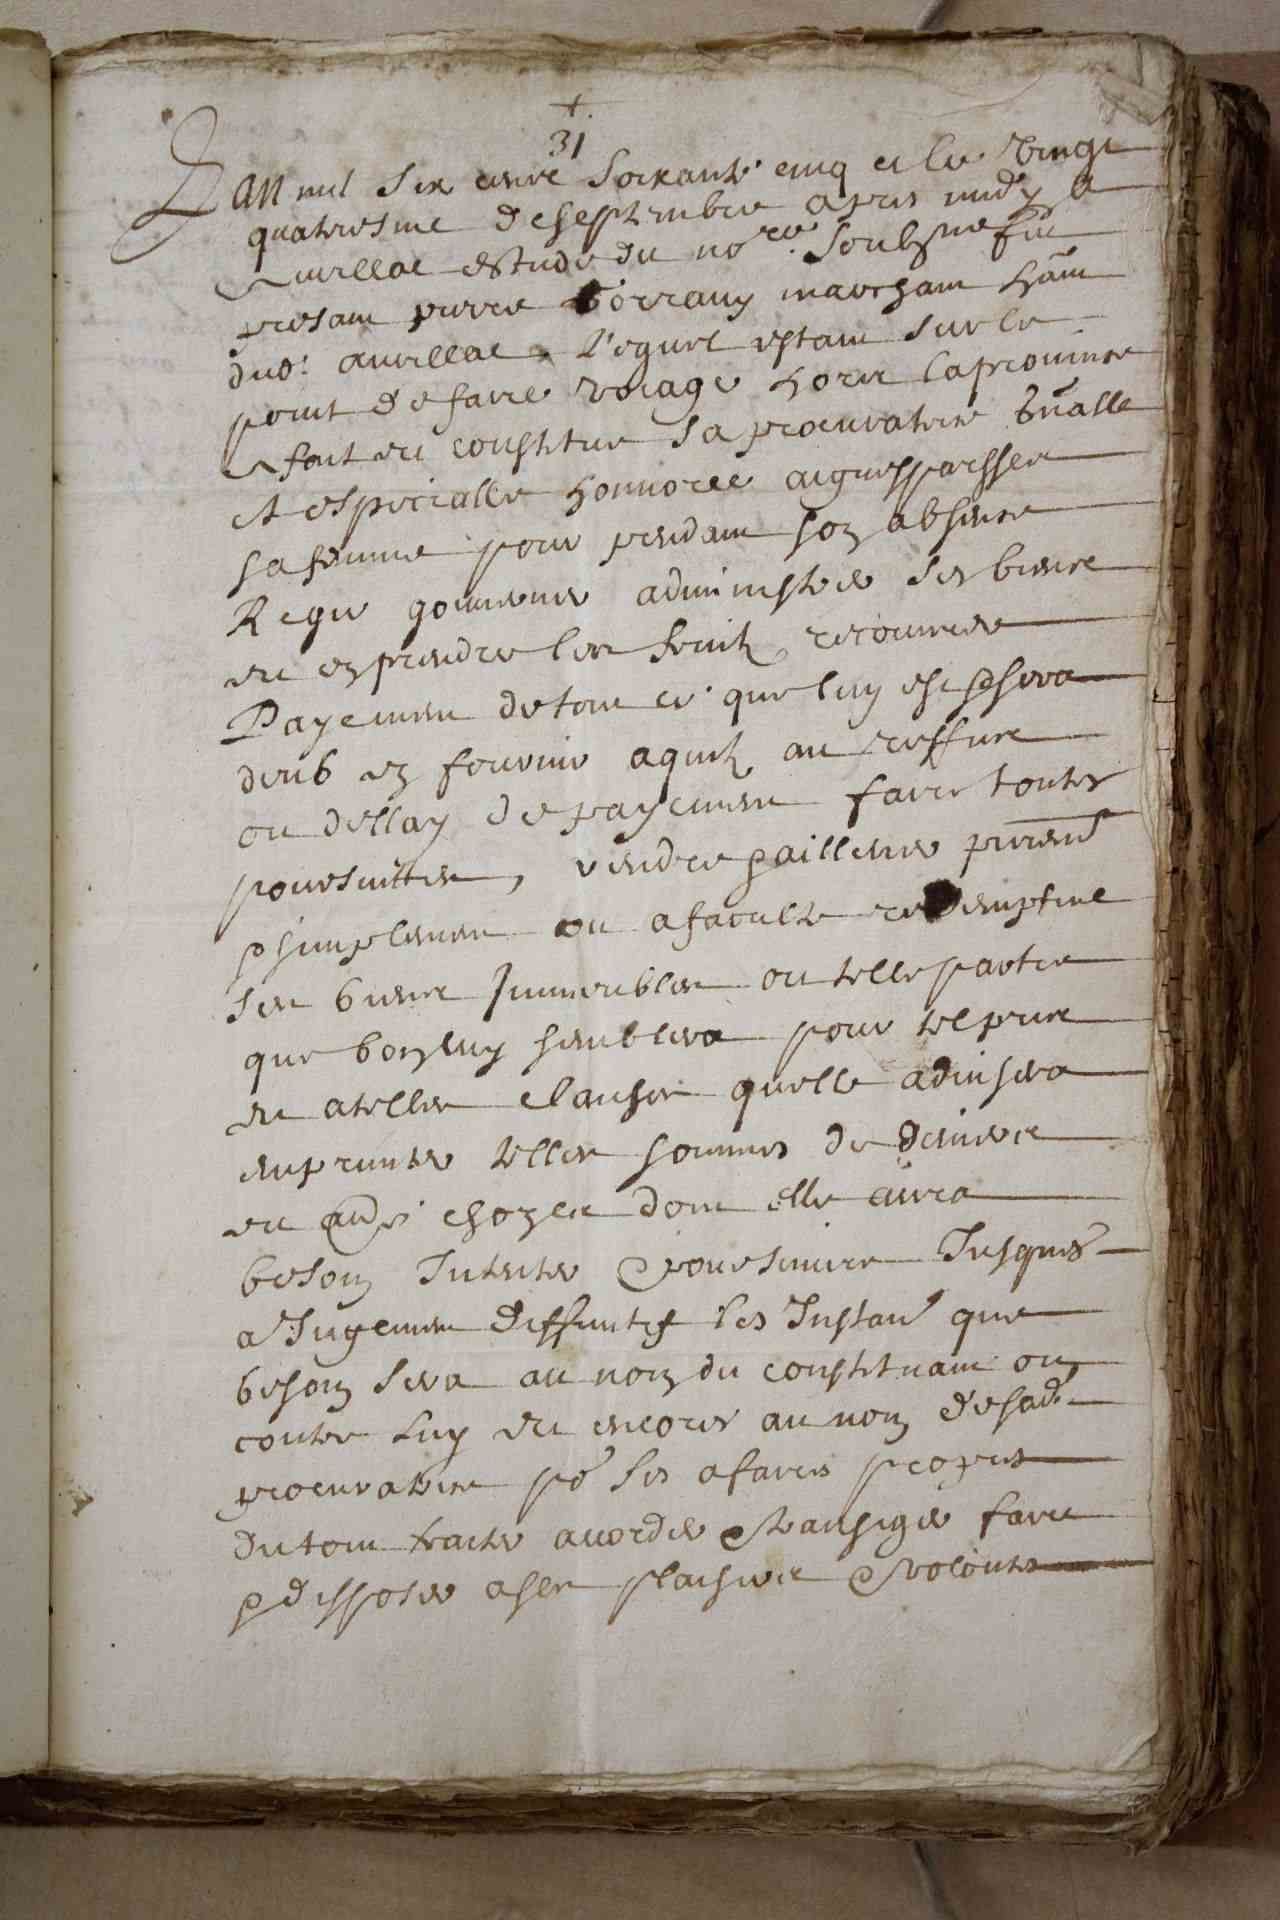 +
31
Lan mil six cens soixante cinq et le vingt
quatriesme de septembre apres midy a
Aurillac estude du no.re soubz.ne fut
presant pierre marchant ham
dud. Aurillac lequel estant sur le
point de faire voiage hors la province
a fait et constitue sa procuratrice gnalle
et especialle honnoree aiguesparsses
sa femme pour pendant son absence
Regir gouverner administrer ses biens
et en prendre les fruitz recouvrer
Payement de tout ce que luy est & sera
deub en fournir aquit au reffus
ou dellay de payement faire toutes
poursuittes, vendre & ailliener puremt
& simplement ou a faculte redemptive
ses biens Immeubles ou telle partie
que bon luy semblera pour tel prix
et a telles clauses quelle advisera
emprunter telles sommes de deniers
et aues choses dont elle aura
besoin Intenter & poursuivre Jusques
a Jugement diffinitif les Instans que
besoin sera au nom du constituant ou
contre luy et encores au nom de sad.
procuratrice po ses afaires propres
du tout traiter acorder & transiger faire
& disposer a ses plaisirs & volontes